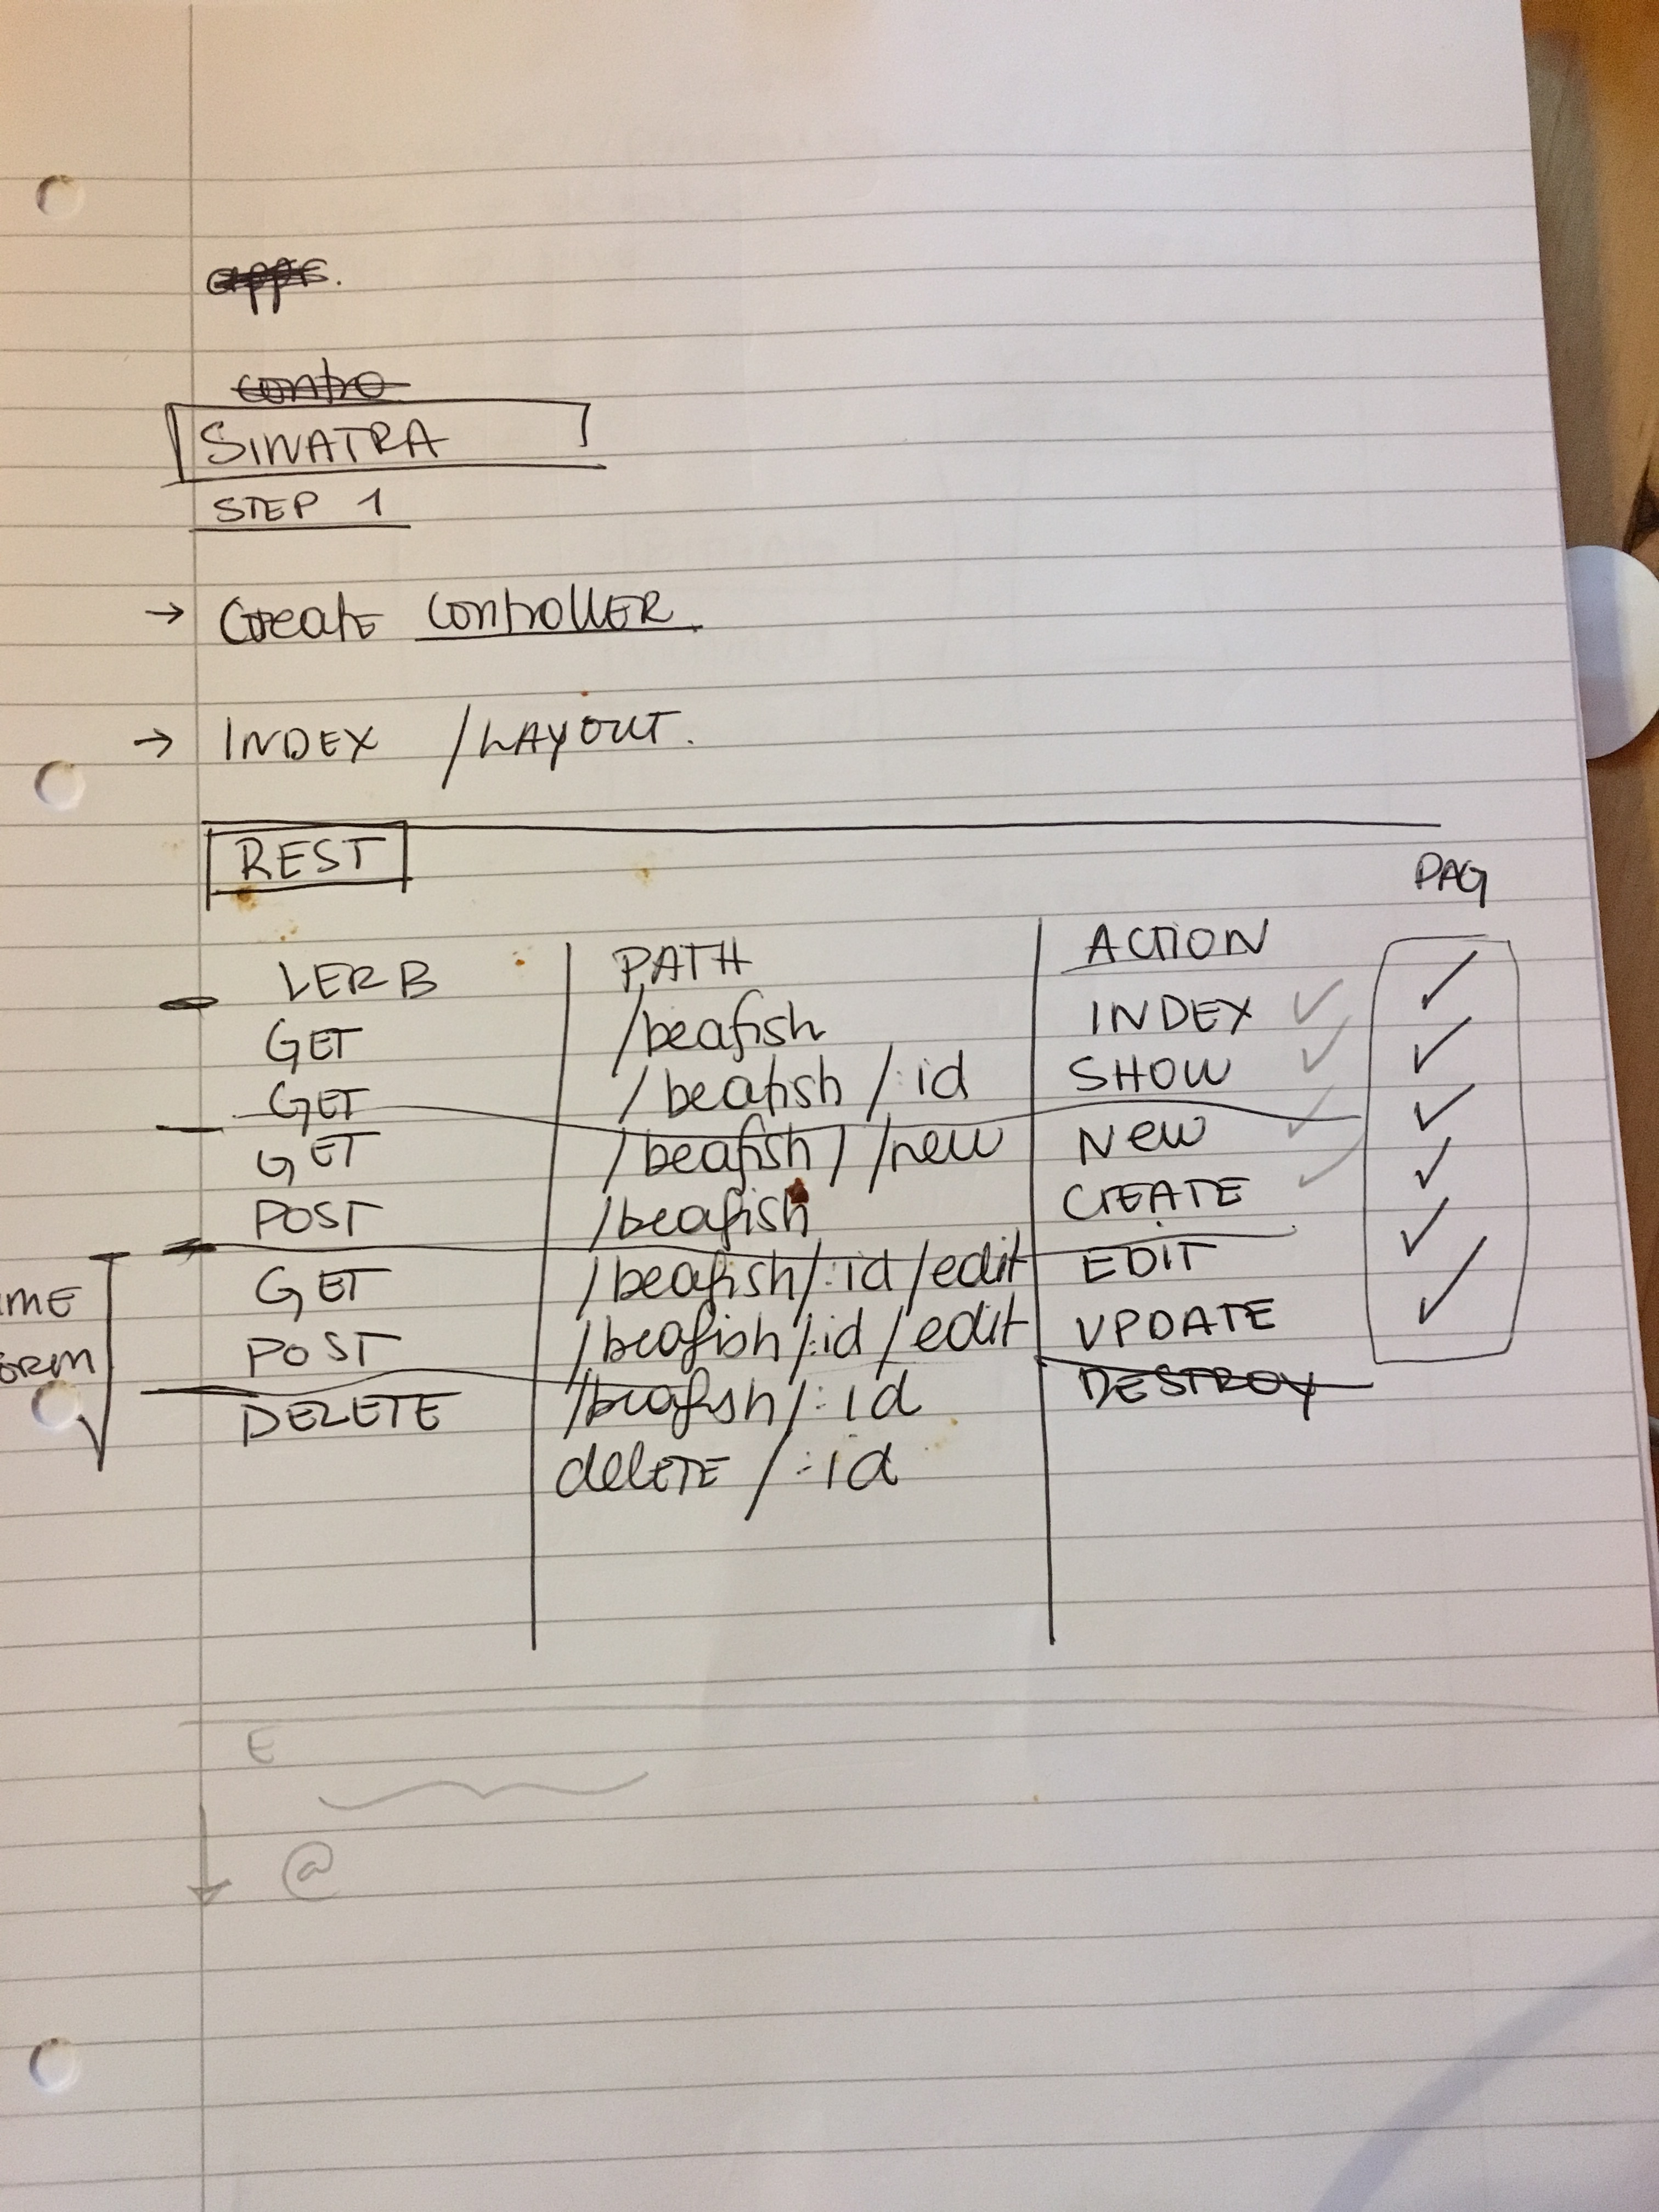 contro
SINATRA
STEP 1
→ Create CONTROLLER.
→ INDEX / LAYOUT.
REST
PAG
VERB PATH ACTION
GET /beafish INDEX ✓ ✓
GET /beafish/:id SHOW ✓ ✓
GET /beafish/ /new New ✓ ✓
POST /beafish CREATE ✓ ✓
GET /beafish/:id/edit EDIT ✓
POST /beafish/:id/edit UPDATE ✓
DELETE /beafish/:id DESTROY
delETE/:id
ME
ORM
E
@